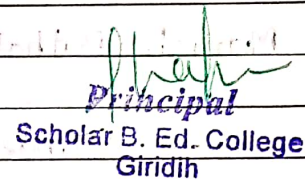 Principal
Scholar B. Ed. College
Giridih